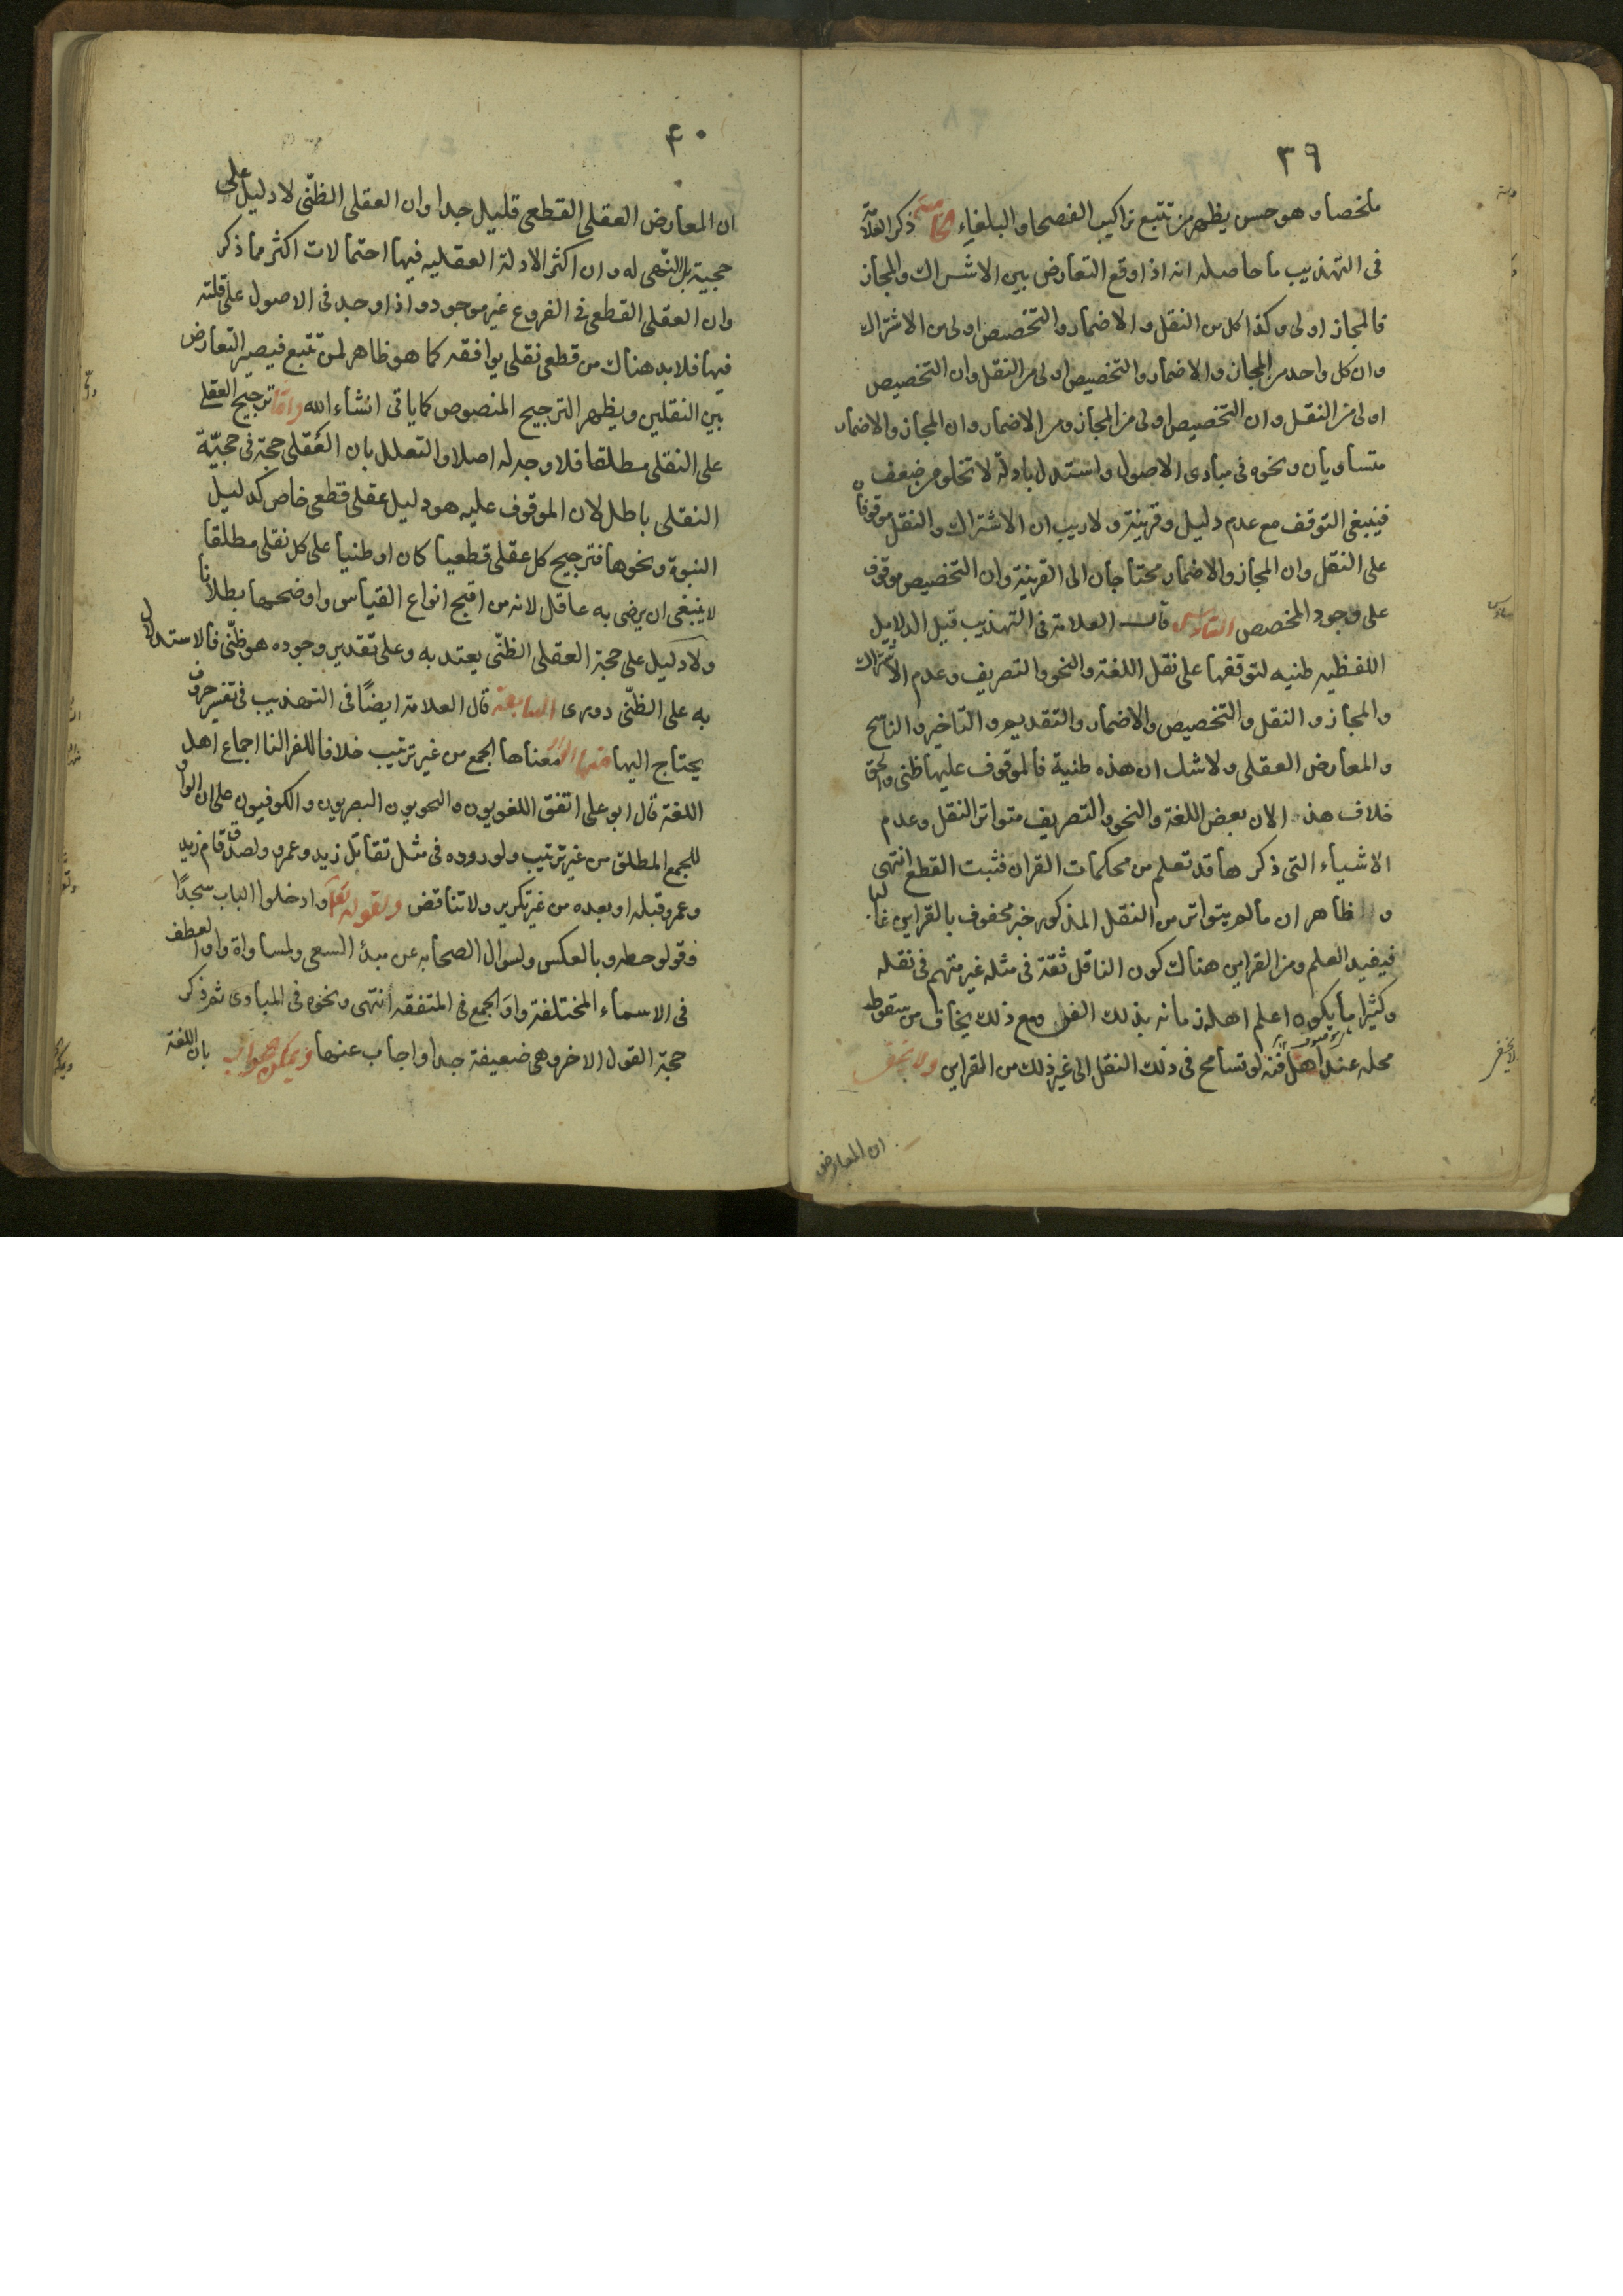 ٣٩
ملخصا وهو حسن يظهر من تتبع تراكيب الفصحا والبلغاء الخامسة ذكر العلامة
فى التهذيب ما حاصله انه اذا وقع التعارض بين الاشتراك والمجاز
فالمجاز اولى وكذا كل من النقل والاضمار والتخصيص اولى من الاشتراك
وان كل واحد من المجاز والاضمار والتخصيص اولى من النقل وان التخصيص
اولى من النقل وان التخصيص اولى من المجاز ومن الاضمار وان المجاز والاضمار
متساويان ونحوه فى مبادى الاصول واستدل بادلة لا تخلو من ضعف
فينبغى التوقف مع عدم دليل وقرينة ولا ريب ان الاشتراك والنقل موقوفان
على النقل وان المجاز والاضمار محتاجان الى القرينة وان التخصيص موقوف
على وجود المخصص السادس قال العلامة فى التهذيب قيل الدلايل
اللفظيه ظنيه لتوقفها على نقل اللغة والنحو والتصريف وعدم الاشتراك
والمجاز والنقل والتخصيص والاضمار والتقديم والتاخير والناسخ
والمعارض العقلى ولا شك ان هذه ظنية فالموقوف عليها ظنى والحق
خلاف هذا لان بعض اللغة والنحو والتصريف متواتر النقل وعدم
الاشياء التى ذكرها قد تعلم من محكمات القران فثبت القطع انتهى
والظاهر ان ما لم يتواتر من النقل المذكور خبر محفوف بالقراين غالبا
فيفيد العلم ومن القراين هناك كون الناقل ثقة فى مثله غير متهم فى نقله
وكثيرا ما يكون اعلم اهل زمانه بذلك الفن ومع ذلك يخاف من سقوط
محله عند اهل فنه لو تسامح فى ذلك النقل الى غير ذلك من القراين ولا يخفى
ان المعارض
٤٠
ان المعارض العقلى القطعى قليل جدا وان العقلى الظنّى لا دليل على
حجية بل النهى له وان اكثر الادلة العقليه فيها احتمالات اكثر مما ذكر
وان العقلى القطعى فى الفروع غير موجود واذا وجد فى الاصول على قلته
فيها فلا بد هناك من قطعى نقلى يوافقه كما هو ظاهر لمن تتبع فيصير التعارض
بين النقلين ويظهر الترجيح المنصوص كما ياتى انشاء الله واما ترجيح العقلى
على النقلى مطلقا فلا وجه له اصلا والتعلل بان العقلى حجة فى حجيّة
النقلى باطل لان الموقوف عليه هو دليل عقلى قطعى خاص كدليل
النبوة ونحوها فترجيح كل عقلى قطعيا كان او ظنيا على كل نقلى مطلقا
لا ينبغى ان يرضى به عاقل لانه من اقبح انواع القياس واوضحها بطلانا
ولا دليل على حجة العقلى الظنّى يعتد به وعلى تقدير وجوده هو ظنّى فالاستدلال
به على الظنّى دورى السابعة قال العلامة ايضاً فى التهذيب فى تفسير حروف
يحتاج اليها منها الواو معناها الجمع من غير ترتيب خلافا للفرا لنا اجماع اهل
اللغة قال ابو على اتفق اللغويون والنحويون البصريون والكوفيون على ان الواو
للجمع المطلق من غير ترتيب ولوروده فى مثل تقاتل زيد وعمرو ولصدق قام زيد
وعمرو قبله او بعده من غير تكرير ولا تناقض ولقوله تعالى وادخلوا الباب سجدًا
وقولوا حطه وبالعكس ولسوال الصحابه عن مبدأ السعى ولمساواة واو العطف
فى الاسماء المختلفة واو الجمع فى المتفقه انتهى ونحوه فى المبادى ثم ذكر
حجة القول الاخر وهى ضعيفة جدا واجاب عنها ويمكن الجواب بان اللغة